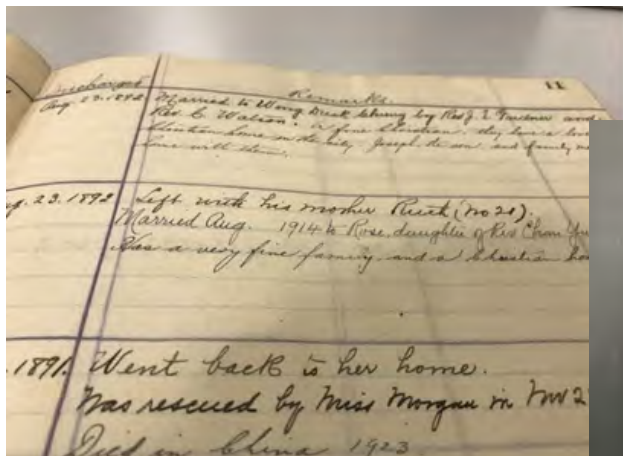 Discharged Remarks. 11
Aug. 23. 1892 Married to Wong by Rev J. E. Gardner and
Rev. C. Watson. A fine Christian. They have a
Christian home in the city. Joseph the son and family
home with them.
23. 1892 Left with his mother Ruth (no 20).
Married Aug. 1914 to Rose, daughter of Rev Chan
Has a very fine family and a Christian
1891. Went back to her home.
Was rescued by Miss Morgan in
Died in China 1923